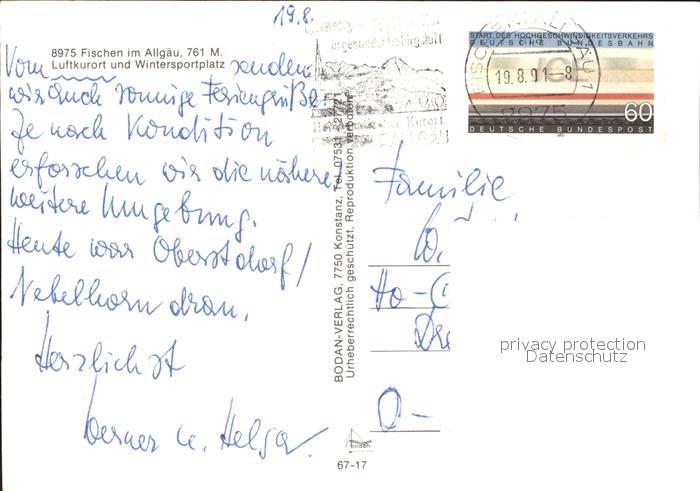 19.8.
8975 Fischen im Allgäu, 761 M.
Luftkurort und Wintersportplatz
Vom senden
wir Euch sonnige Feriengrüße.
Je nach Kondition
erforschen wir die nähere/
weitere Umgebung.
Heute war Oberstdorf/
Nebelhorn dran.
Herzlichst
Werner u. Helga.
BODAN-VERLAG, 7750 Konstanz, Tel. 07531
Urheberrechtlich geschützt, Reproduktion verboten
67-17
in gesunder Gebirgsluft
Kurort
19.8.91-8
8975
START DES HOCHGESCHWINDIGKEITSVERKEHRS
DEUTSCHE BUNDESBAHN
60
DEUTSCHE BUNDESPOST
Familie
W.
Ho-
Dre
O-
privacy protection
Datenschutz